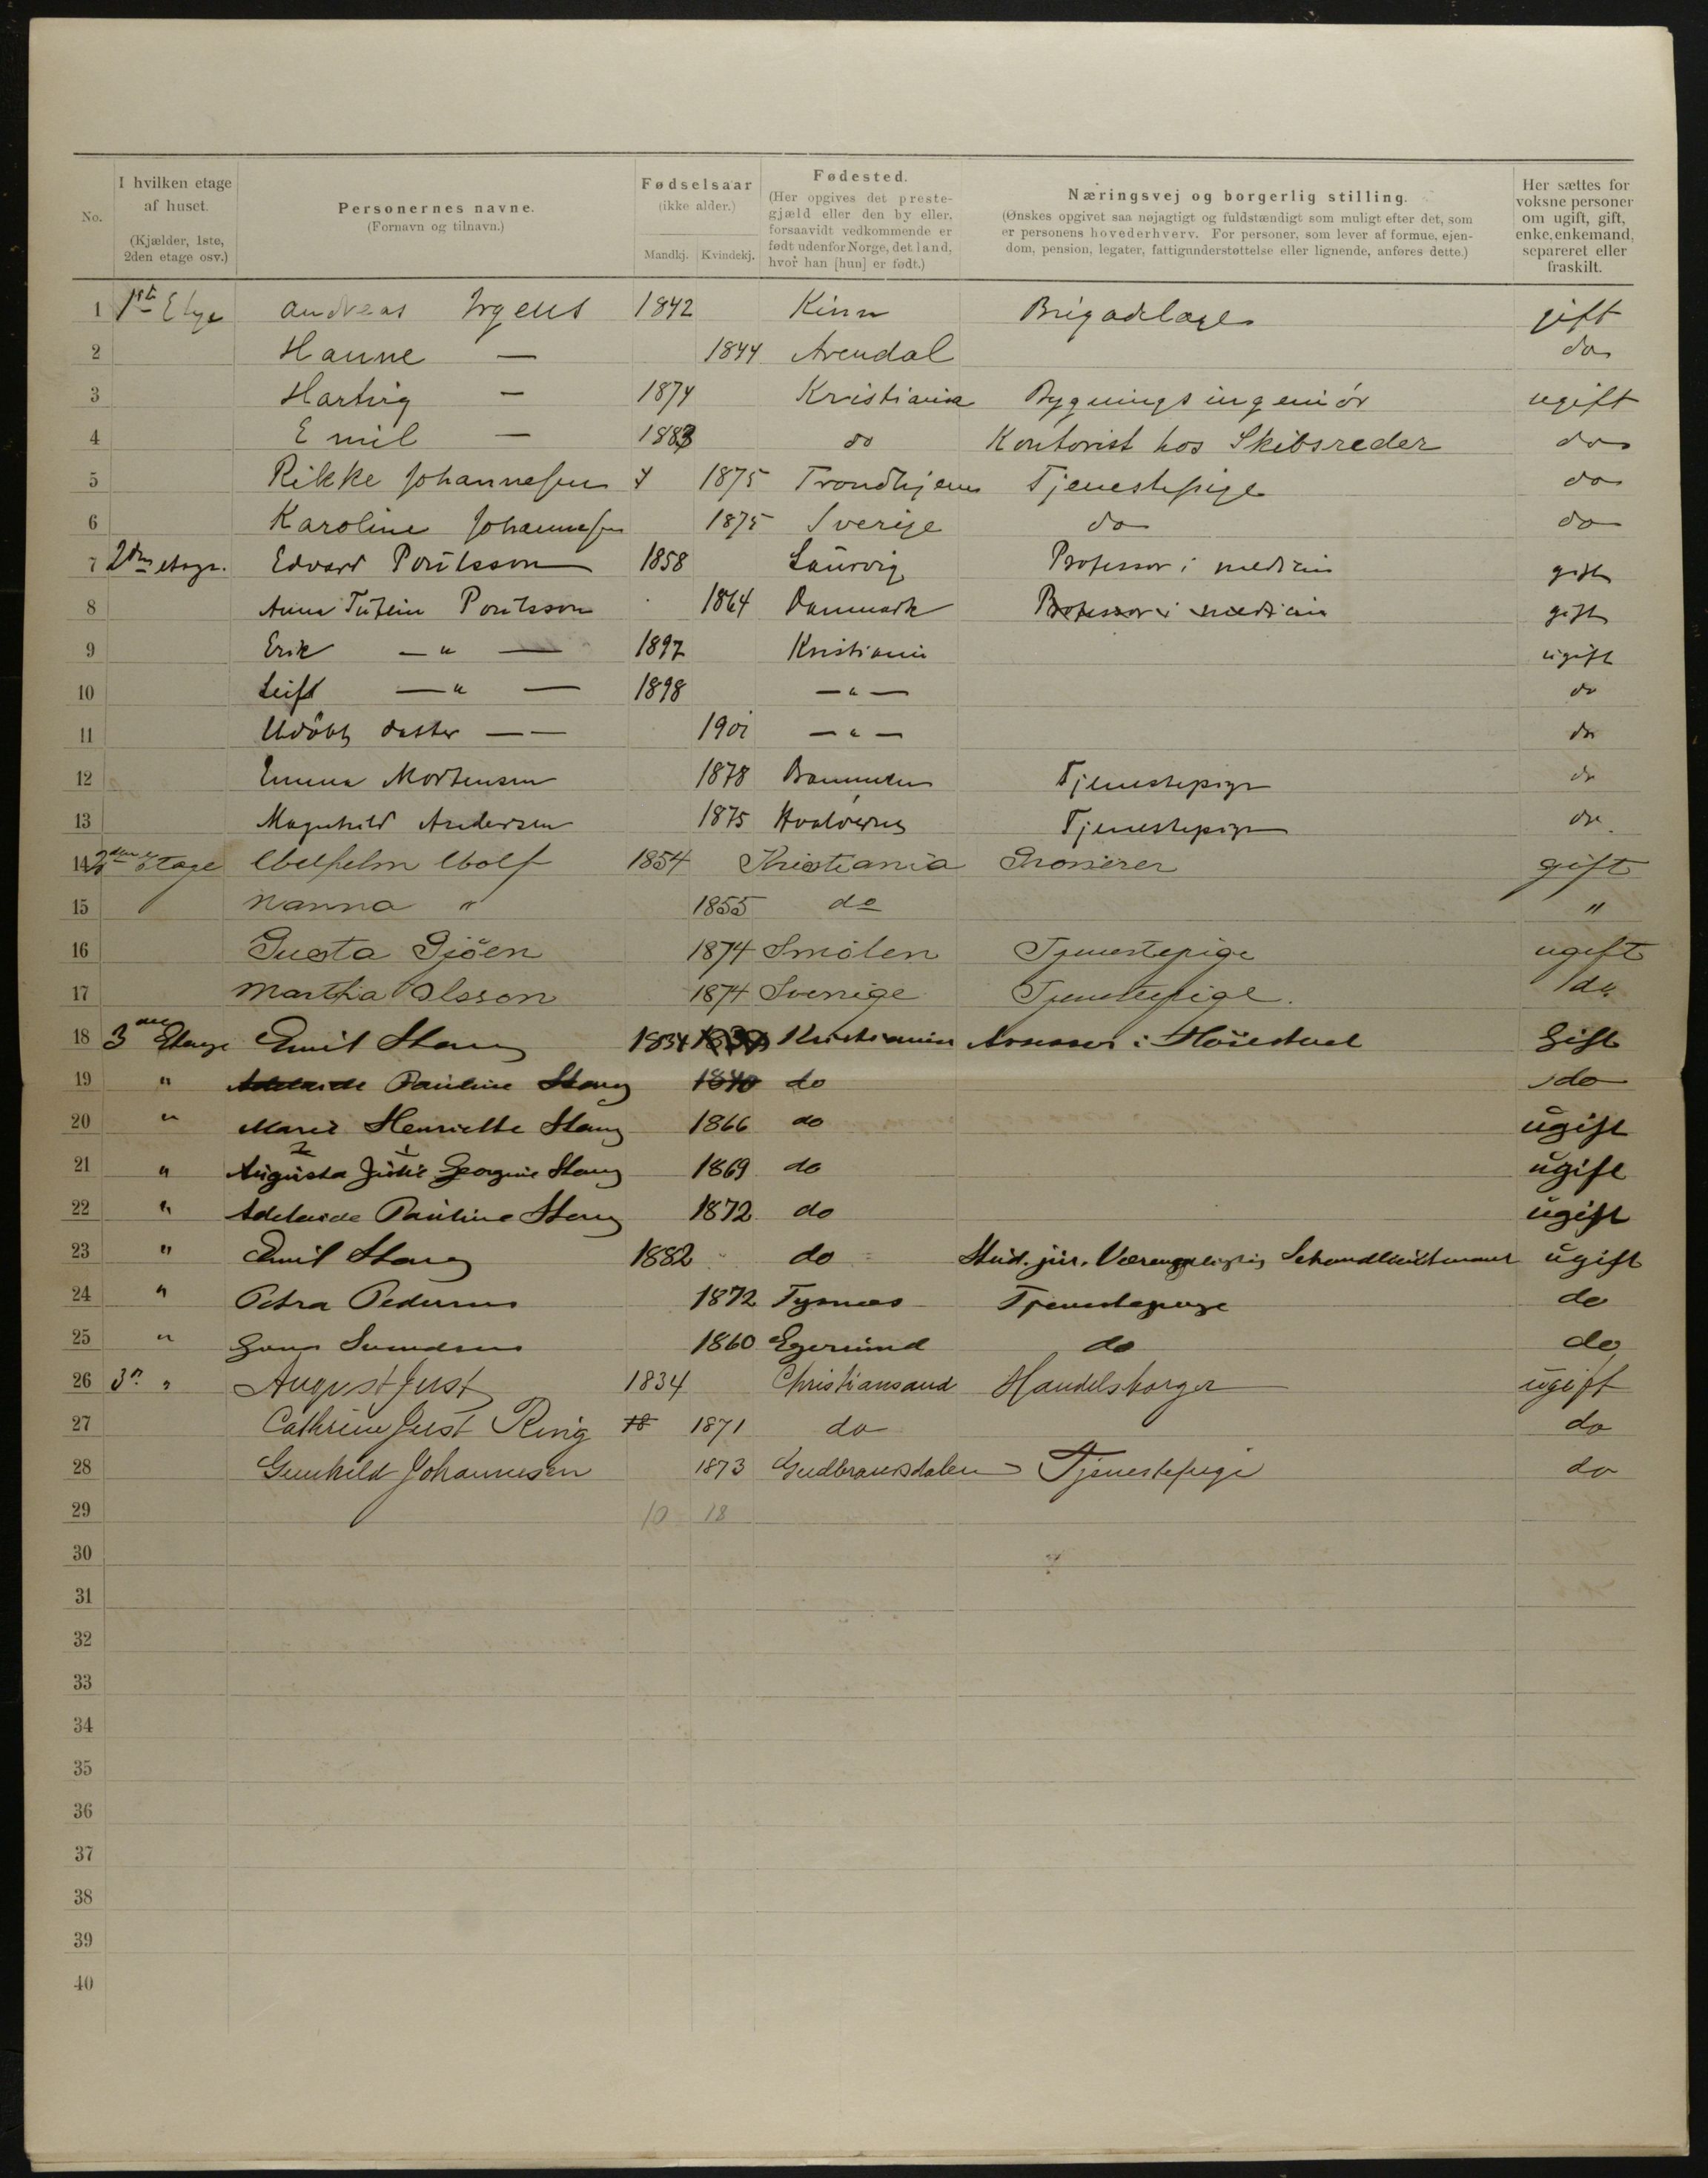 No.
I hvilken etage af huset.
(Kjælder, 1ste, 2den etage osv.)
Personernes navne.
(Fornavn og tilnavn.)
Fødselsaar
(ikke alder.)
Mandkj. Kvindekj.
Fødested.
(Her opgives det prestegjæld eller den by eller, forsaavidt vedkommende er født udenfor Norge, det land, hvor han [hun] er født.)
Næringsvej og borgerlig stilling.
(Ønskes opgivet saa nøjagtigt og fuldstændigt som muligt efter det, som er personens hovederhverv. For personer, som lever af formue, ejendom, pension, legater, fattigunderstøttelse eller lignende, anføres dette.)
Her sættes for voksne personer om ugift, gift, enke, enkemand, separeret eller fraskilt.
1 1ste Etage Andreas Irgens 1842 Kinn Brigadelæge gift
2 Hanne — 1844 Arendal do
3 Hartvig — 1874 Kristiania Bygningsingeniör ugift
4 Emil — 1883 do Kontorist hos Skibsreder do
5 Rikke Johannesen 1875 Trondhjem Tjenestepige do
6 Karoline Johannesen 1875 Sverige do do
7 2den etage. Edvard Poulsson 1858 Laurvig Professor i medicin gift
8 Anna Tutein Poulsson 1864 Danmark Professor i medicin gift
9 Erik — " — 1897 Kristiania ugift
10 Leif — " — 1898 — " — do
11 Udöbt datter — — 1901 — " — do
12 Emma Mortensen 1878 Drammen Tjenestepige do
13 Magnhild Andersen 1875 Hvaløerne Tjenestepige do
14 2den Etage Wilhelm Wolf 1854 Kristiania Grosserer gift
15 Nanna " 1855 do "
16 Gusta Gjöen 1874 Smölen Tjenestepige ugift
17 Martha Olsson 1874 Sverige Tjenestepige. do
18 3die Etage Emil Stang 1834 Kristiania Assessor i Höiesteret Gift
19 " Adelaide Pauline Stang 1840 do do
20 " Marie Henriette Stang 1866 do ugift
21 " Augusta Julie Georgine Stang 1869 do ugift
22 " Adelaide Pauline Stang 1872 do ugift
23 " Emil Stang 1882 do Stud. jur. Værnepligtig Sekondløitnant ugift
24 " Petra Pedersen 1872 Tysnæs Tjenestepige do
25 " Svendsen 1860 Egersund do do
26 3n " August Just 1834 Christiansand Handelsborger ugift
27 Cathrine Just Ring 18 1871 do do
28 Gunhild Johannesen 1873 Gudbrandsdalen Tjenestepige do
29 10 18
30
31
32
33
34
35
36
37
38
39
40